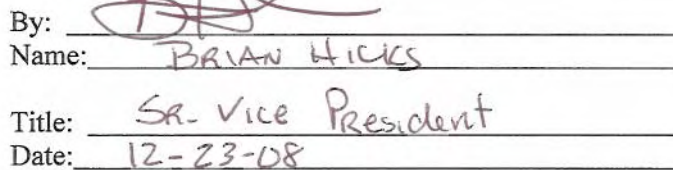 By:
Name: BRIAN HICKS
Title: SR- Vice President
Date: 12-23-08